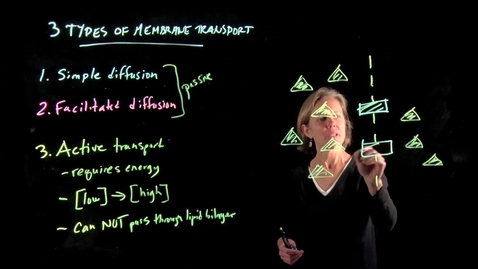 3 TYPES OF MEMBRANE TRANSPORT
1. Simple diffusion
2. Facilitated diffusion
passive
3. Active transport
- requires energy
- [low] → [high]
- Can NOT pass through lipid bilayer